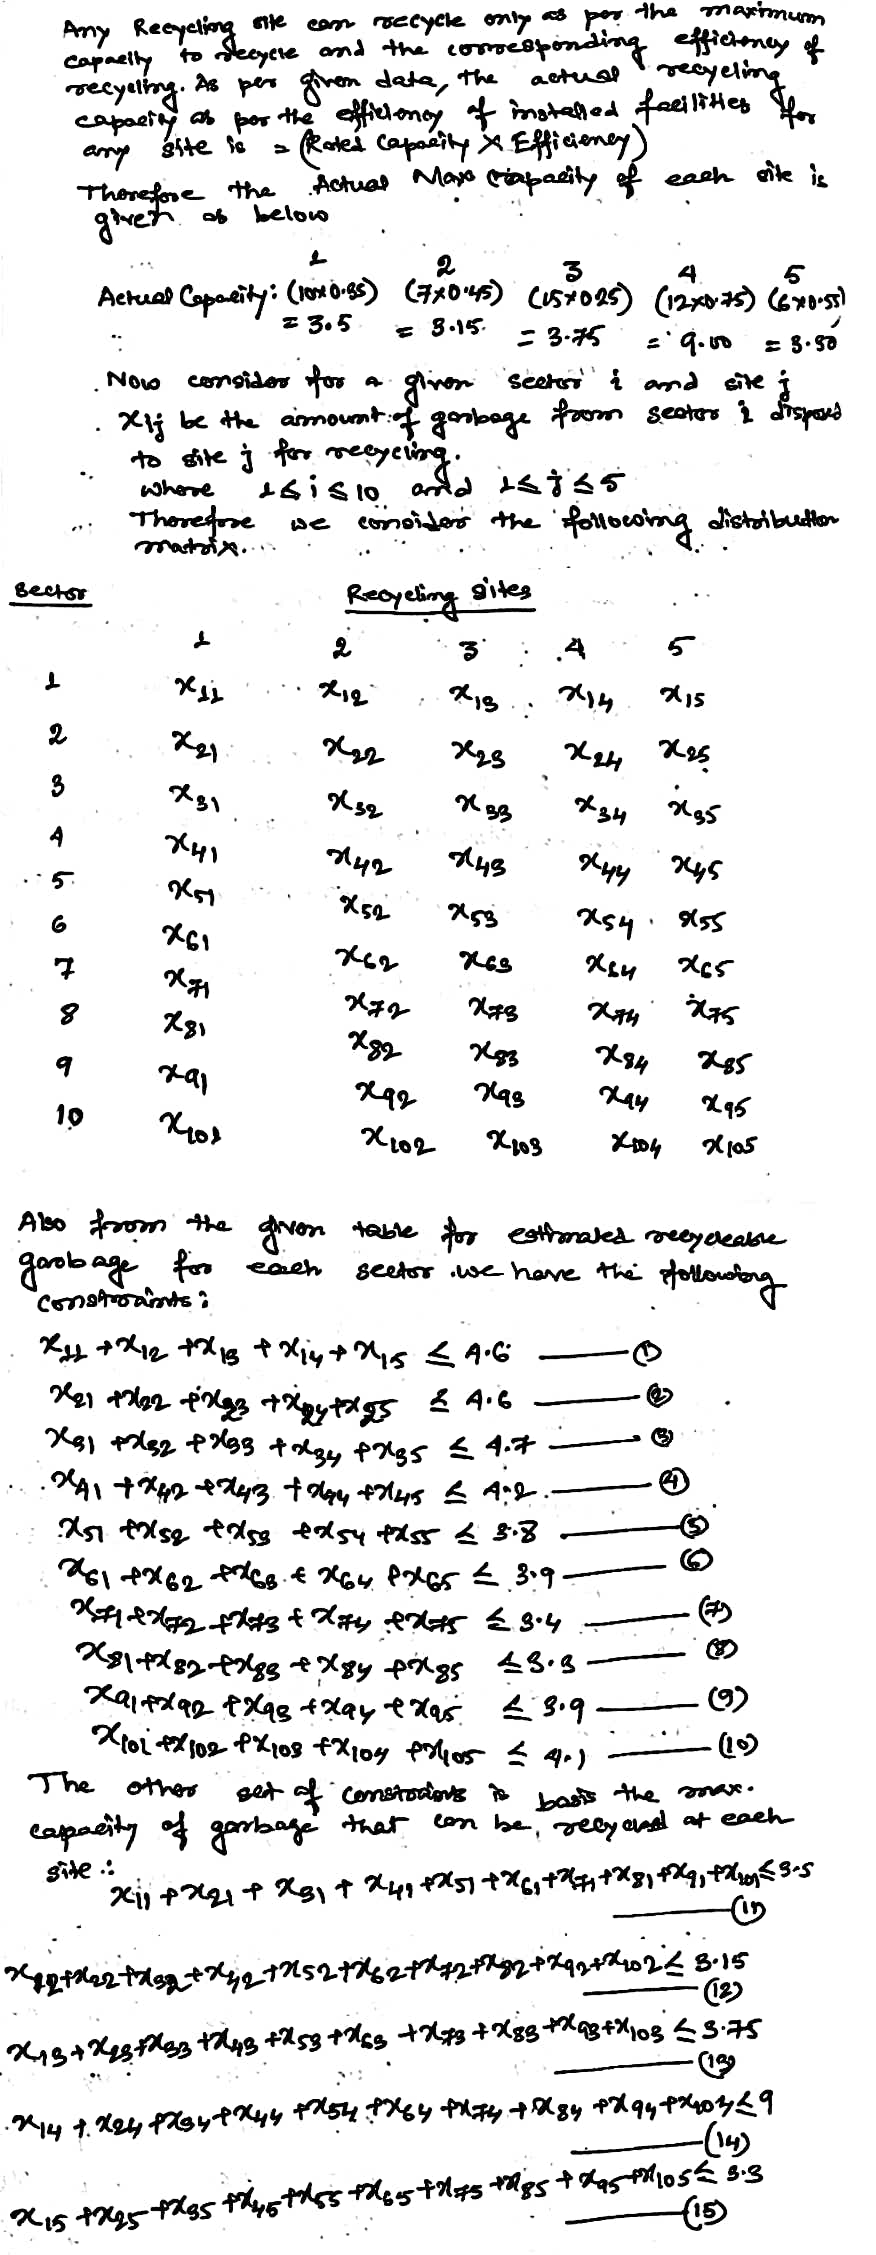 Any Recycling site can recycle only as per the maximum
capacity to recycle and the corresponding efficiency of
recycling. As per given data, the actual recycling
capacity as per the efficiency of installed facilities for
any site is = (Rated Capacity × Efficiency)
Therefore the Actual Max Capacity of each site is
given as below
1 2 3 4 5
Actual Capacity: (10×0.35) (7×0.45) (15×0.25) (12×0.75) (6×0.55)
= 3.5 = 3.15 = 3.75 = 9.00 = 3.30
Now consider for a given sector i and site j
xij be the amount of garbage from sector i disposed
to site j for recycling.
where 1≤i≤10 and 1≤j≤5
Therefore we consider the following distribution
matrix...
Sector Recycling Sites
1 2 3 4 5
1 x11 x12 x13 x14 x15
2 x21 x22 x23 x24 x25
3 x31 x32 x33 x34 x35
4 x41 x42 x43 x44 x45
5 x51 x52 x53 x54 x55
6 x61 x62 x63 x64 x65
7 x71 x72 x73 x74 x75
8 x81 x82 x83 x84 x85
9 x91 x92 x93 x94 x95
10 x101 x102 x103 x104 x105
Also from the given table for estimated recycleable
garbage for each sector we have the following
constraints:
x11 + x12 + x13 + x14 + x15 ≤ 4.6 — (1)
x21 + x22 + x23 + x24 + x25 ≤ 4.6 — (2)
x31 + x32 + x33 + x34 + x35 ≤ 4.7 — (3)
x41 + x42 + x43 + x44 + x45 ≤ 4.2 — (4)
x51 + x52 + x53 + x54 + x55 ≤ 3.8 — (5)
x61 + x62 + x63 + x64 + x65 ≤ 3.9 — (6)
x71 + x72 + x73 + x74 + x75 ≤ 3.4 — (7)
x81 + x82 + x83 + x84 + x85 ≤ 3.3 — (8)
x91 + x92 + x93 + x94 + x95 ≤ 3.9 — (9)
x101 + x102 + x103 + x104 + x105 ≤ 4.1 — (10)
The other set of constraints is basis the max.
capacity of garbage that can be recycled at each
site :
x11 + x21 + x31 + x41 + x51 + x61 + x71 + x81 + x91 + x101 ≤ 3.5
— (11)
x12 + x22 + x32 + x42 + x52 + x62 + x72 + x82 + x92 + x102 ≤ 3.15
— (12)
x13 + x23 + x33 + x43 + x53 + x63 + x73 + x83 + x93 + x103 ≤ 3.75
— (13)
x14 + x24 + x34 + x44 + x54 + x64 + x74 + x84 + x94 + x104 ≤ 9
— (14)
x15 + x25 + x35 + x45 + x55 + x65 + x75 + x85 + x95 + x105 ≤ 3.3
— (15)